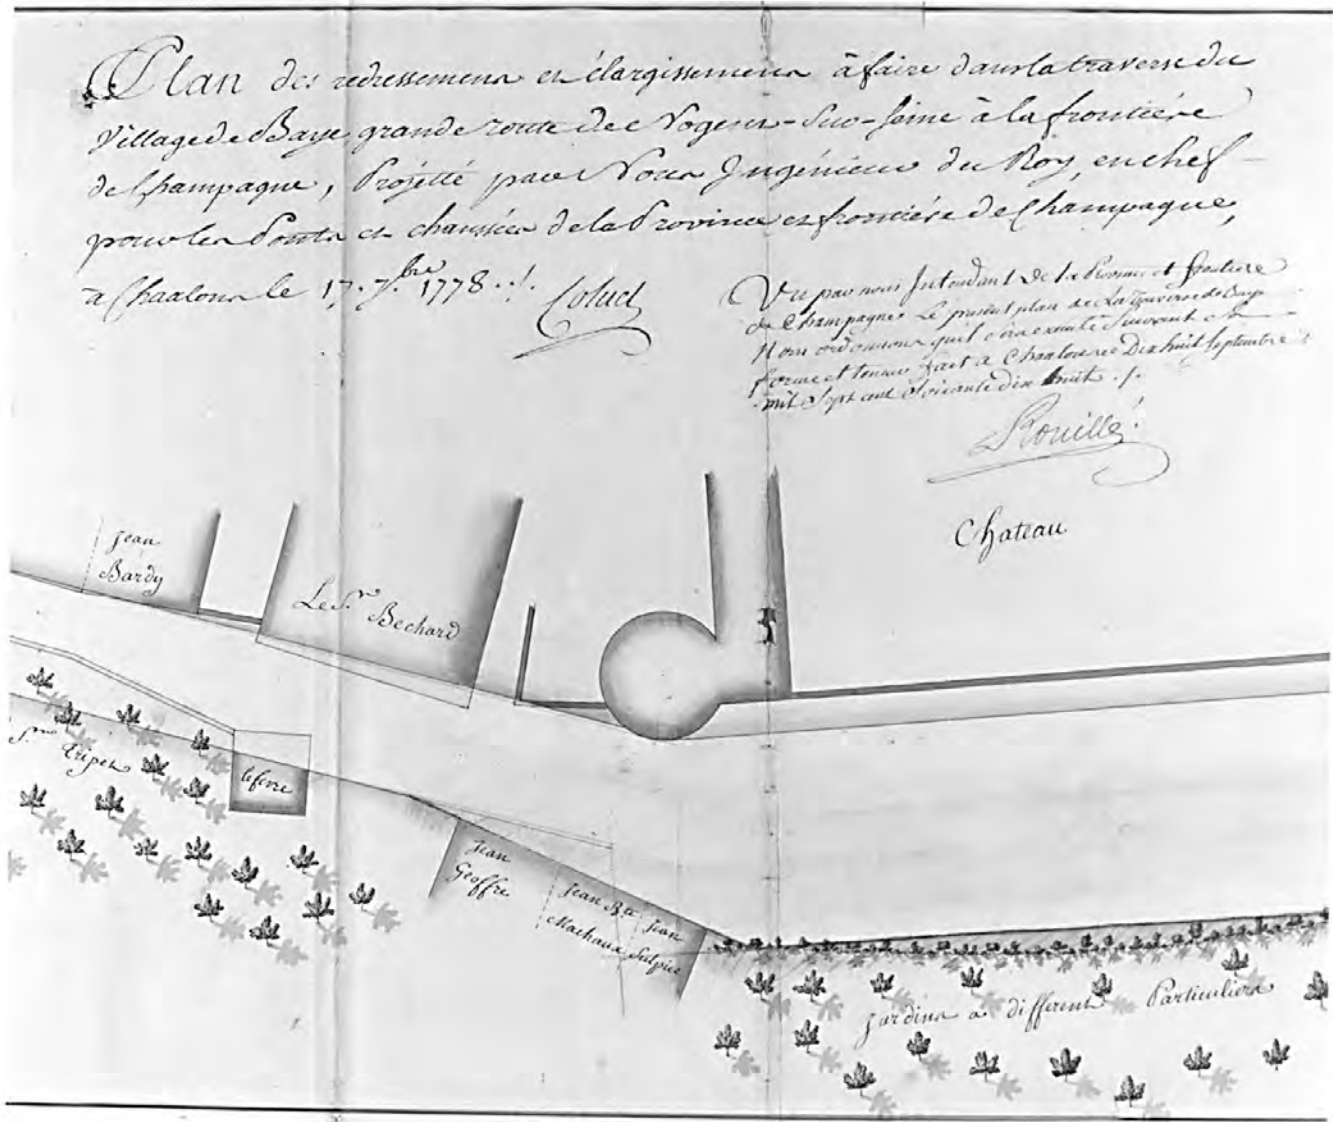 Plan des redressemens et élargissemens à faire dans la traverse du
Village de Baye, grande route de Nogent-Sur-Seine à la frontière
de Champagne, Projetté par Nous Ingénieur du Roy, en chef
pour les Ponts et chaussées de la Province et frontière de Champagne,
a Chaalons le 17. 7.bre 1778 ../.
Coluel
Vu par nous Intendant de la Province et frontiere
de Champagne Le present plan de La Traverse de Baye
Nous ordonnons qu'il sera executé Suivant sa
forme et teneur fait a Chaalons ce Dix huit Septembre
mil Sept cent Soixante dix huit ./.
Rouillé
Chateau
Jean
Bardy
Le S.r Bechard
S.r Tripet
lefevre
Jean
Geoffre
Jean B.te
Machaux
Jean
Sulpice
Jardins a different Particuliers